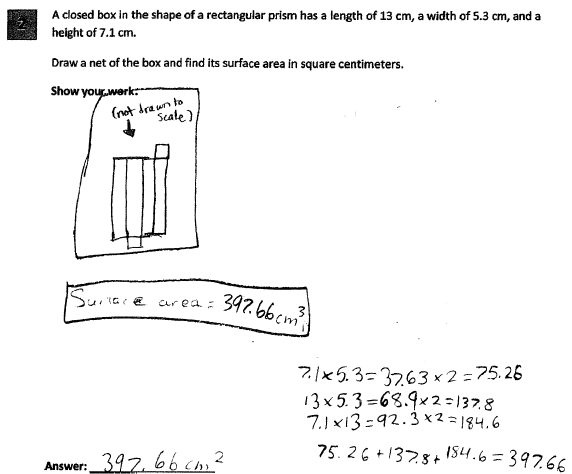 2.
A closed box in the shape of a rectangular prism has a length of 13 cm, a width of 5.3 cm, and a
height of 7.1 cm.
Draw a net of the box and find its surface area in square centimeters.
Show your work:
(not drawn to
scale)
Surface area = 397.66 cm³
7.1×5.3=37.63×2=75.26
13×5.3=68.9×2=137.8
7.1×13=92.3×2=184.6
75.26+137.8+184.6=397.66
Answer: 397.66 cm²